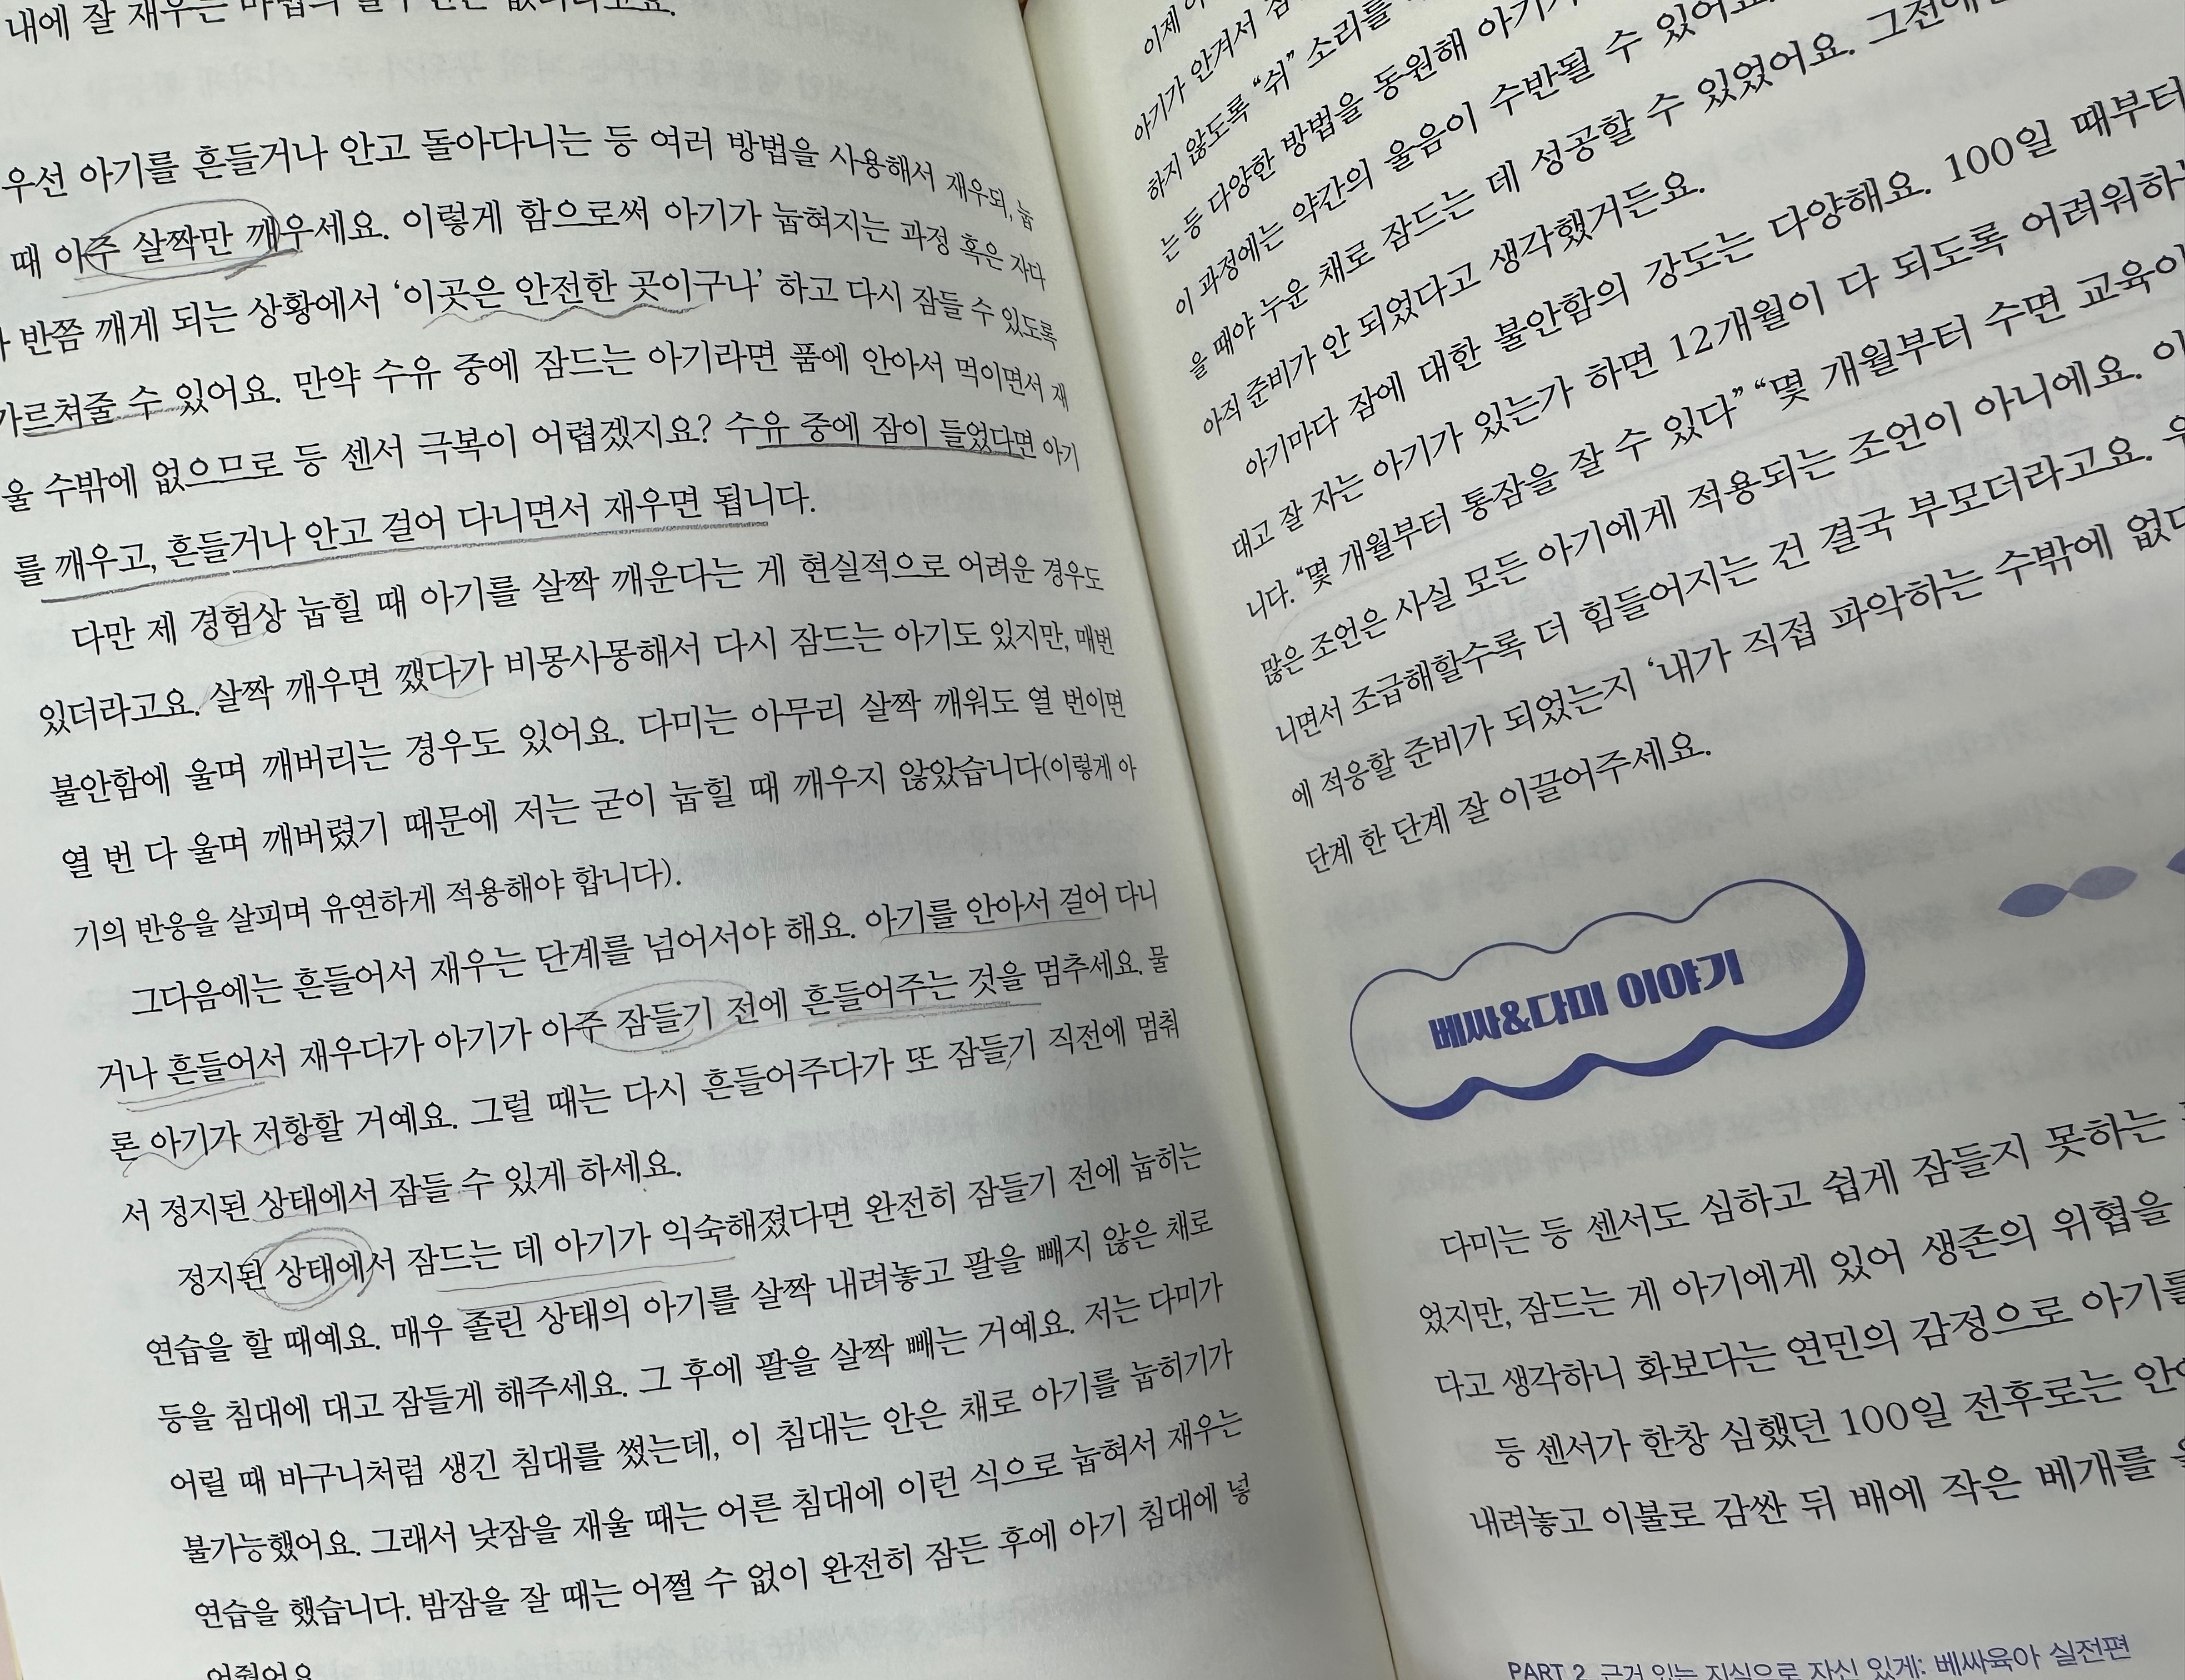 내에 잘 재우는 마법의
우선 아기를 흔들거나 안고 돌아다니는 등 여러 방법을 사용해서 재우되, 눕
때 아주 살짝만 깨우세요. 이렇게 함으로써 아기가 눕혀지는 과정 혹은 자다
반쯤 깨게 되는 상황에서 ‘이곳은 안전한 곳이구나’ 하고 다시 잠들 수 있도록
가르쳐줄 수 있어요. 만약 수유 중에 잠드는 아기라면 품에 안아서 먹이면서 재
울 수밖에 없으므로 등 센서 극복이 어렵겠지요? 수유 중에 잠이 들었다면 아기
를 깨우고, 흔들거나 안고 걸어 다니면서 재우면 됩니다.
다만 제 경험상 눕힐 때 아기를 살짝 깨운다는 게 현실적으로 어려운 경우도
있더라고요. 살짝 깨우면 깼다가 비몽사몽해서 다시 잠드는 아기도 있지만, 매번
불안함에 울며 깨버리는 경우도 있어요. 다미는 아무리 살짝 깨워도 열 번이면
열 번 다 울며 깨버렸기 때문에 저는 굳이 눕힐 때 깨우지 않았습니다(이렇게 아
기의 반응을 살피며 유연하게 적용해야 합니다).
그다음에는 흔들어서 재우는 단계를 넘어서야 해요. 아기를 안아서 걸어 다니
거나 흔들어서 재우다가 아기가 아주 잠들기 전에 흔들어주는 것을 멈추세요. 물
론 아기가 저항할 거예요. 그럴 때는 다시 흔들어주다가 또 잠들기 직전에 멈춰
서 정지된 상태에서 잠들 수 있게 하세요.
정지된 상태에서 잠드는 데 아기가 익숙해졌다면 완전히 잠들기 전에 눕히는
연습을 할 때예요. 매우 졸린 상태의 아기를 살짝 내려놓고 팔을 빼지 않은 채로
등을 침대에 대고 잠들게 해주세요. 그 후에 팔을 살짝 빼는 거예요. 저는 다미가
어릴 때 바구니처럼 생긴 침대를 썼는데, 이 침대는 안은 채로 아기를 눕히기가
불가능했어요. 그래서 낮잠을 재울 때는 어른 침대에 이런 식으로 눕혀서 재우는
연습을 했습니다. 밤잠을 잘 때는 어쩔 수 없이 완전히 잠든 후에 아기 침대에 넣
어줬어요
이제
아기가 안겨서
하지 않도록 “쉬” 소리를
는 등 다양한 방법을 동원해 아기가
이 과정에는 약간의 울음이 수반될 수 있어요.
을 때야 누운 채로 잠드는 데 성공할 수 있었어요. 그전에는
아직 준비가 안 되었다고 생각했거든요.
아기마다 잠에 대한 불안함의 강도는 다양해요. 100일 때부터
대고 잘 자는 아기가 있는가 하면 12개월이 다 되도록 어려워하는
니다. “몇 개월부터 통잠을 잘 수 있다” “몇 개월부터 수면 교육이
많은 조언은 사실 모든 아기에게 적용되는 조언이 아니에요.
니면서 조급해할수록 더 힘들어지는 건 결국 부모더라고요.
에 적응할 준비가 되었는지 ‘내가 직접 파악하는 수밖에 없다
단계 한 단계 잘 이끌어주세요.
베싸&다미 이야기
다미는 등 센서도 심하고 쉽게 잠들지 못하는
었지만, 잠드는 게 아기에게 있어 생존의 위협을
다고 생각하니 화보다는 연민의 감정으로 아기를
등 센서가 한창 심했던 100일 전후로는
내려놓고 이불로 감싼 뒤 배에 작은 베개를
PART 2 근거 있는 지식으로 자신 있게: 베싸육아 실전편